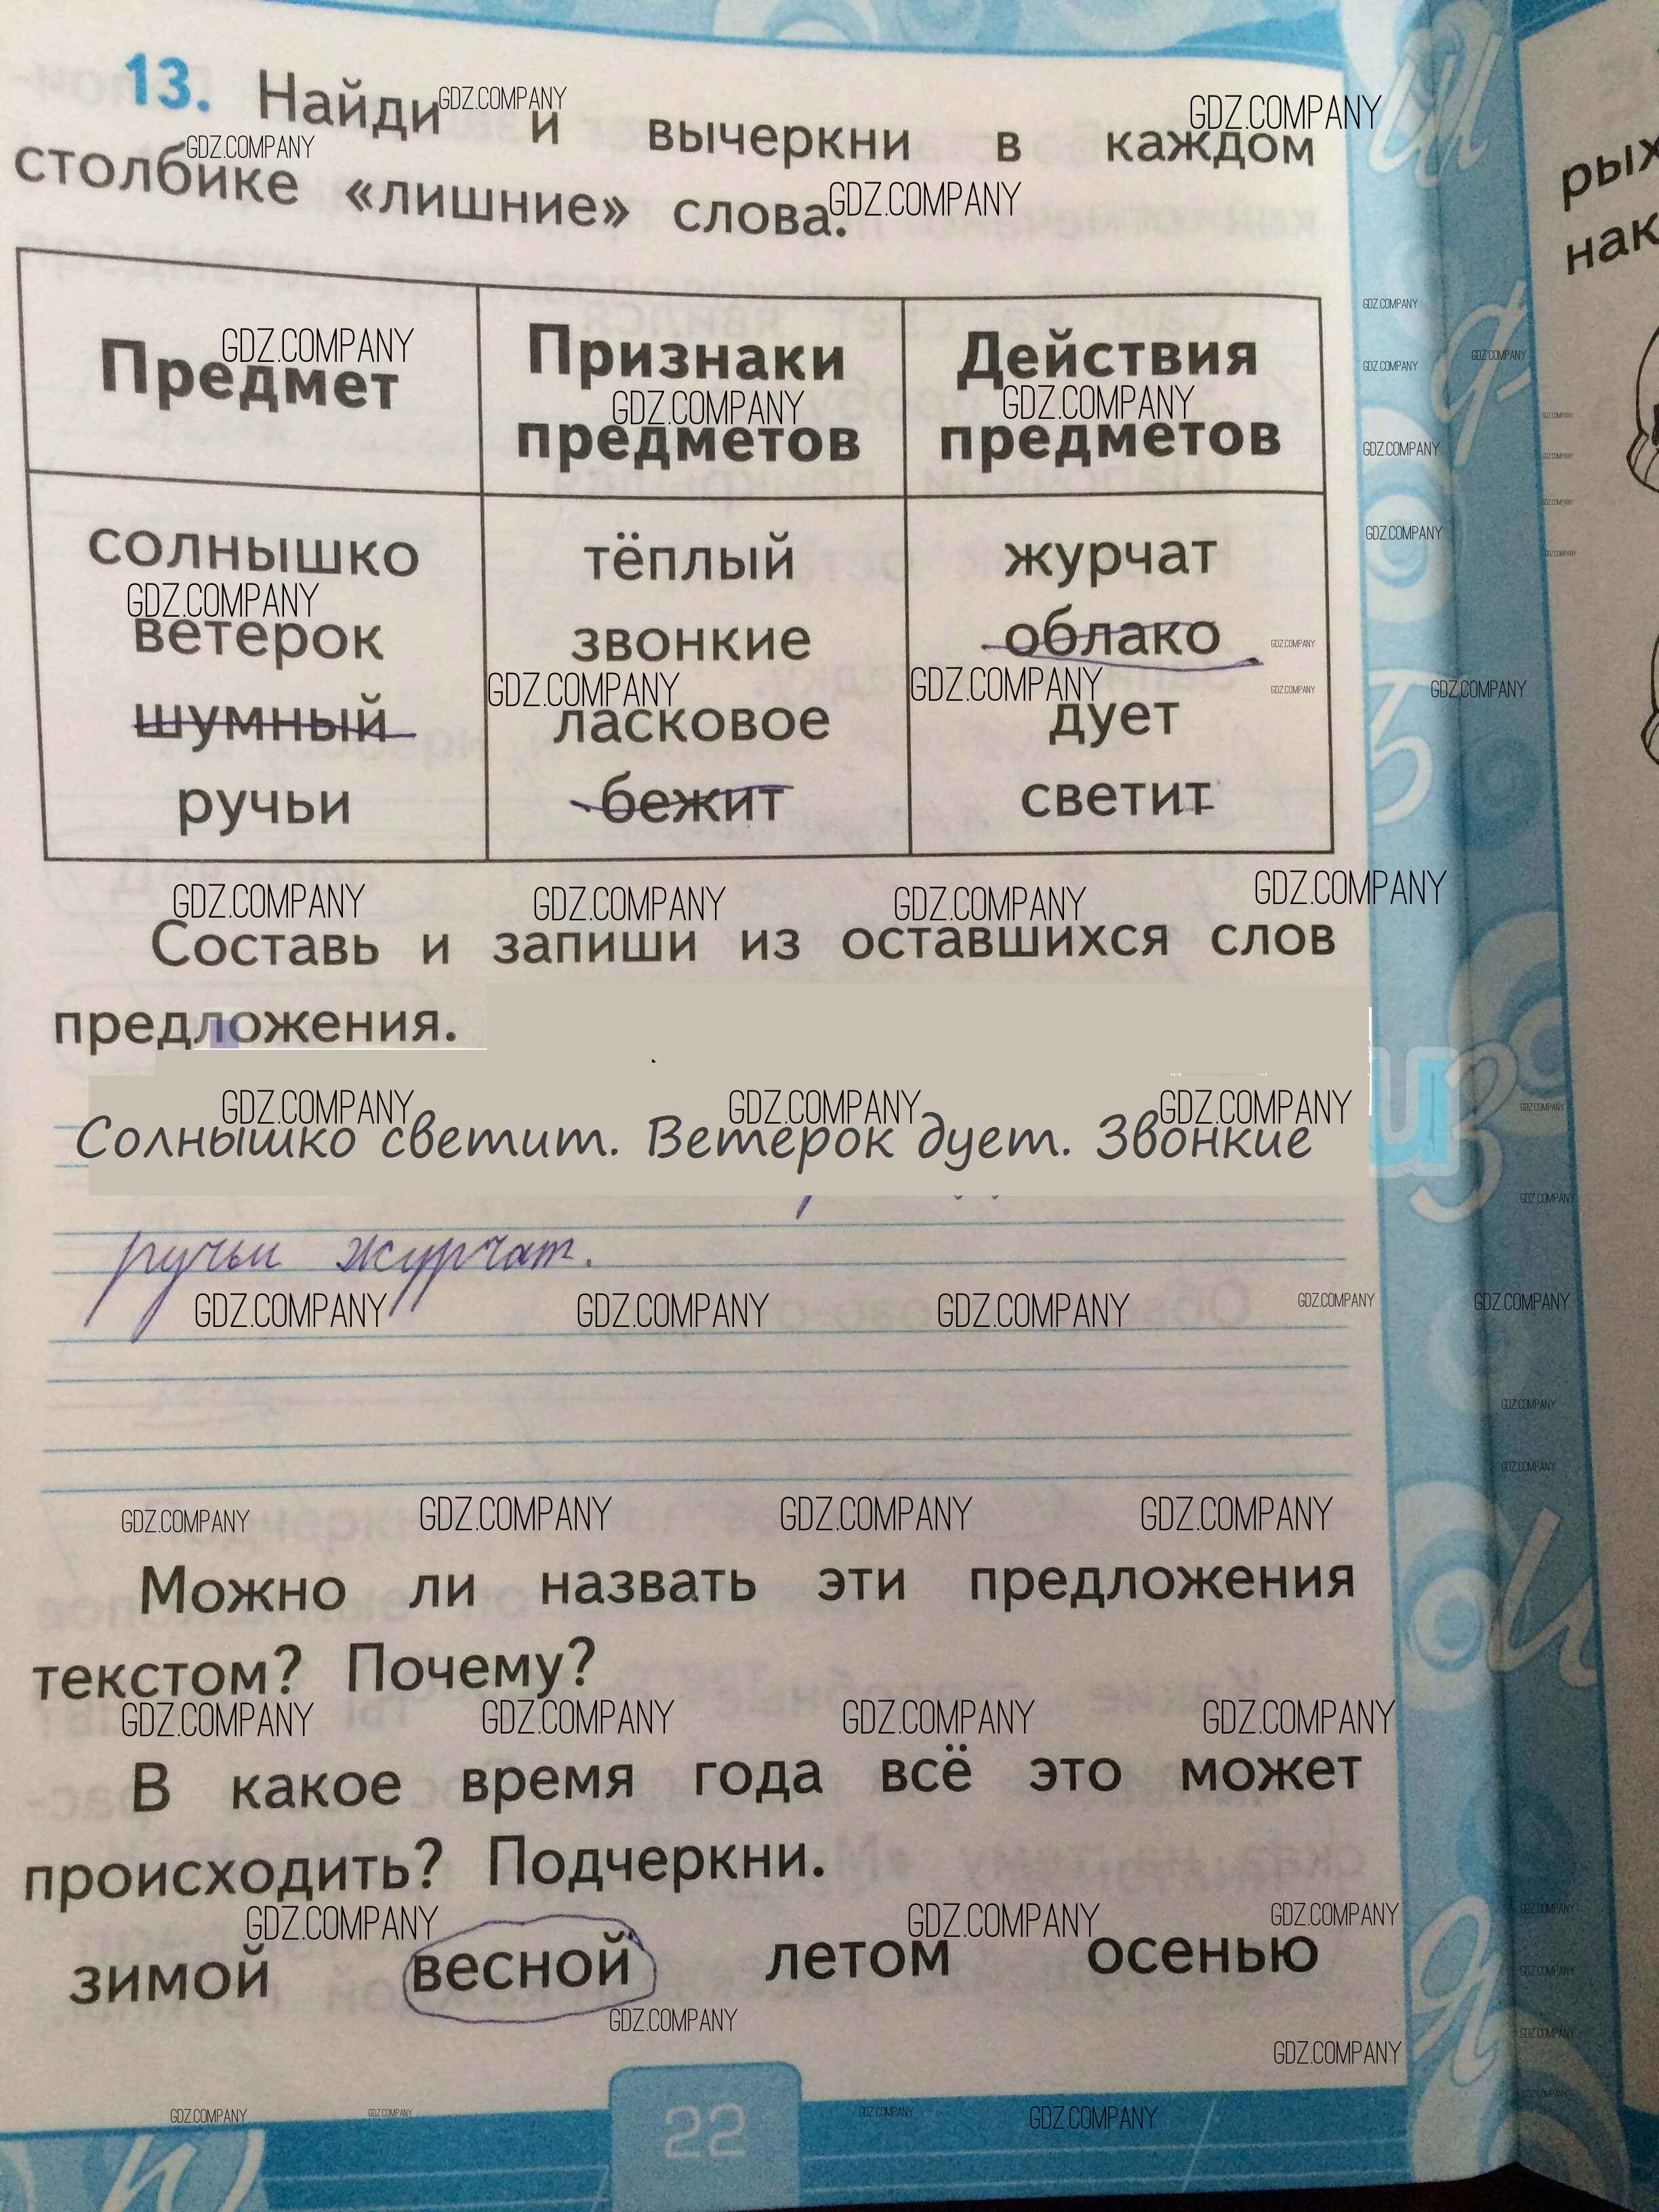 13. Найди и вычеркни в каждом
столбике «лишние» слова.
Предмет
Признаки предметов
Действия предметов
солнышко тёплый журчат
ветерок звонкие облако
шумный ласковое дует
ручьи бежит светит
Составь и запиши из оставшихся слов
предложения.
Солнышко светит. Ветерок дует. Звонкие
ручьи журчат.
Можно ли назвать эти предложения
текстом? Почему?
В какое время года всё это может
происходить? Подчеркни.
зимой весной летом осенью
22
рых
нак
GDZ.COMPANY